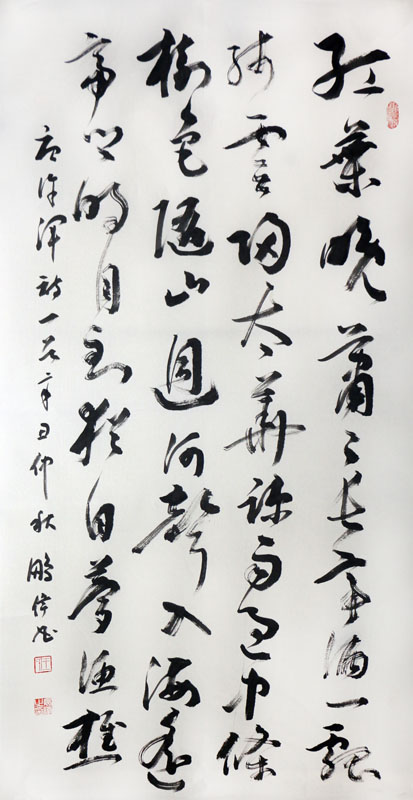 紅葉晚蕭々長亭酒一瓢
殘雲歸太華疎雨過中條
樹色隨山迥河聲入海遙
帝鄉明日到猶自夢漁樵
唐許渾詩一首辛丑仲秋鵬偉書